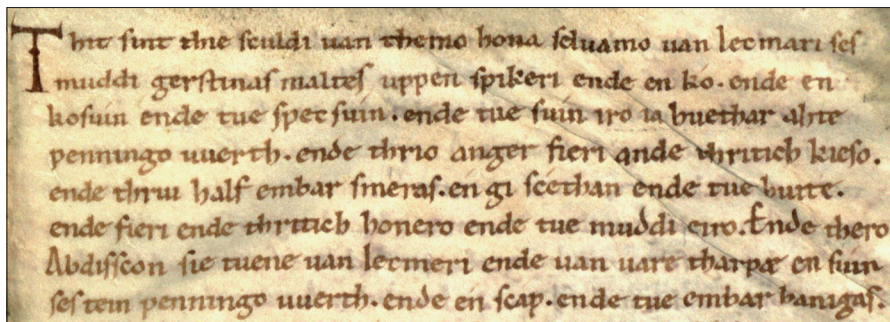 Thit sint thie sculdi uan themo houa seluamo uan lecmari ses
muddi gerstinas maltes uppen spikeri ende en ko. ende en
kosuin ende tue specsuin. ende tue suin iro ia huethar ahte
penningo uuerth. ende thrio anger fieri ande thritich kieso.
ende thriu half embar smeras. en gi scethan ende tue huite.
ende fieri ende thritich honero ende tue muddi eiro. Ende thero
Abdisscon sie tuene uan lecmeri ende uan uare tharpæ en suin
ses tein penningo uuerth. ende en scap. ende tue embar hanigas.